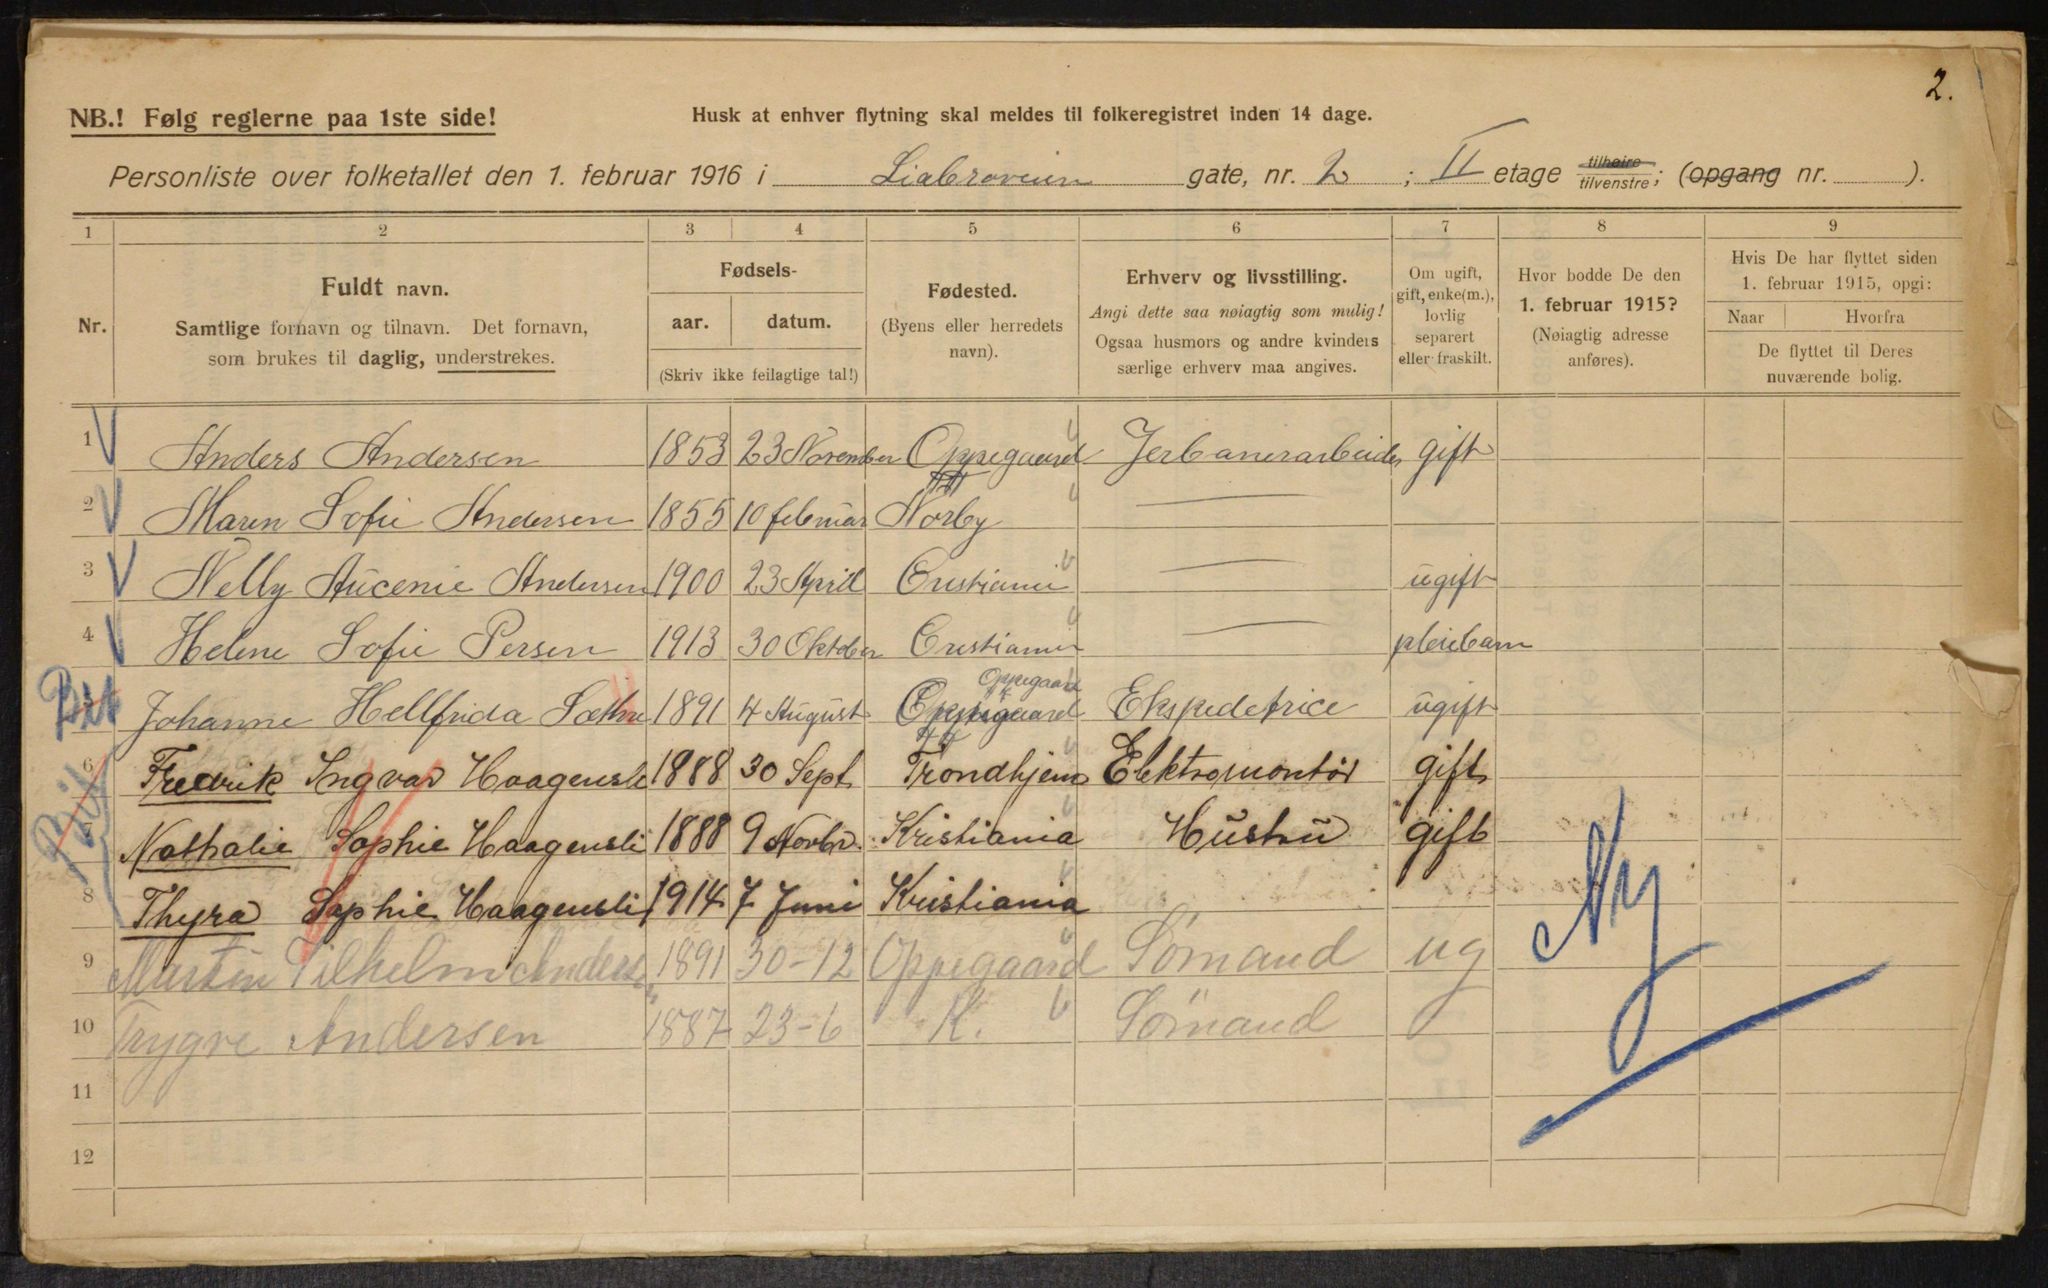 2.
NB.! Følg reglerne paa 1ste side!
Husk at enhver flytning skal meldes til folkeregistret inden 14 dage.
Personliste over folketallet den 1. februar 1916 i Liabroveien gate, nr. 2 ; II etage tilhøire tilvenstre; (opgang nr. ).
1 2 3 4 5 6 7 8 9
Nr.
Fuldt navn.
Samtlige fornavn og tilnavn. Det fornavn,
som brukes til daglig, understrekes.
Fødsels-
aar. datum.
(Skriv ikke feilagtige tal!)
Fødested.
(Byens eller herredets
navn).
Erhverv og livsstilling.
Angi dette saa nøiagtig som mulig!
Ogsaa husmors og andre kvinders
særlige erhverv maa angives.
Om ugift,
gift, enke(m.),
lovlig
separert
eller fraskilt.
Hvor bodde De den
1. februar 1915?
(Nøiagtig adresse
anføres).
Hvis De har flyttet siden
1. februar 1915, opgi:
Naar Hvorfra
De flyttet til Deres
nuværende bolig.
1 Anders Andersen 1853 23 November Oppegaard Jerbanerarbeider gift
2 Maren Sofie Andersen 1855 10 februar Norby
3 Nelly Aucenie Andersen 1900 23 April Cristiania ugift
4 Helene Sofie Persen 1913 30 Oktober Cristiania pleiebarn
Oppegaard
Johanne Hellfrida Sæthre 1891 4 August Oppegaard Ekspedetrice ugift
6 Fredrik Ingvar Haagensli 1888 30 Sept Trondhjem Elektromontør gift
7 Nathalie Sophie Haagensli 1888 9 Novbr. Kristiania Hustru gift
8 Thyra Sophie Haagensli 1914 7 Juni Kristiania
9 Martin Vilhelm Anders 1891 30-12 Oppegaard Sømand ug
10 Trygve Andersen 1887 23-6 K. Sømand
Ny
11
12